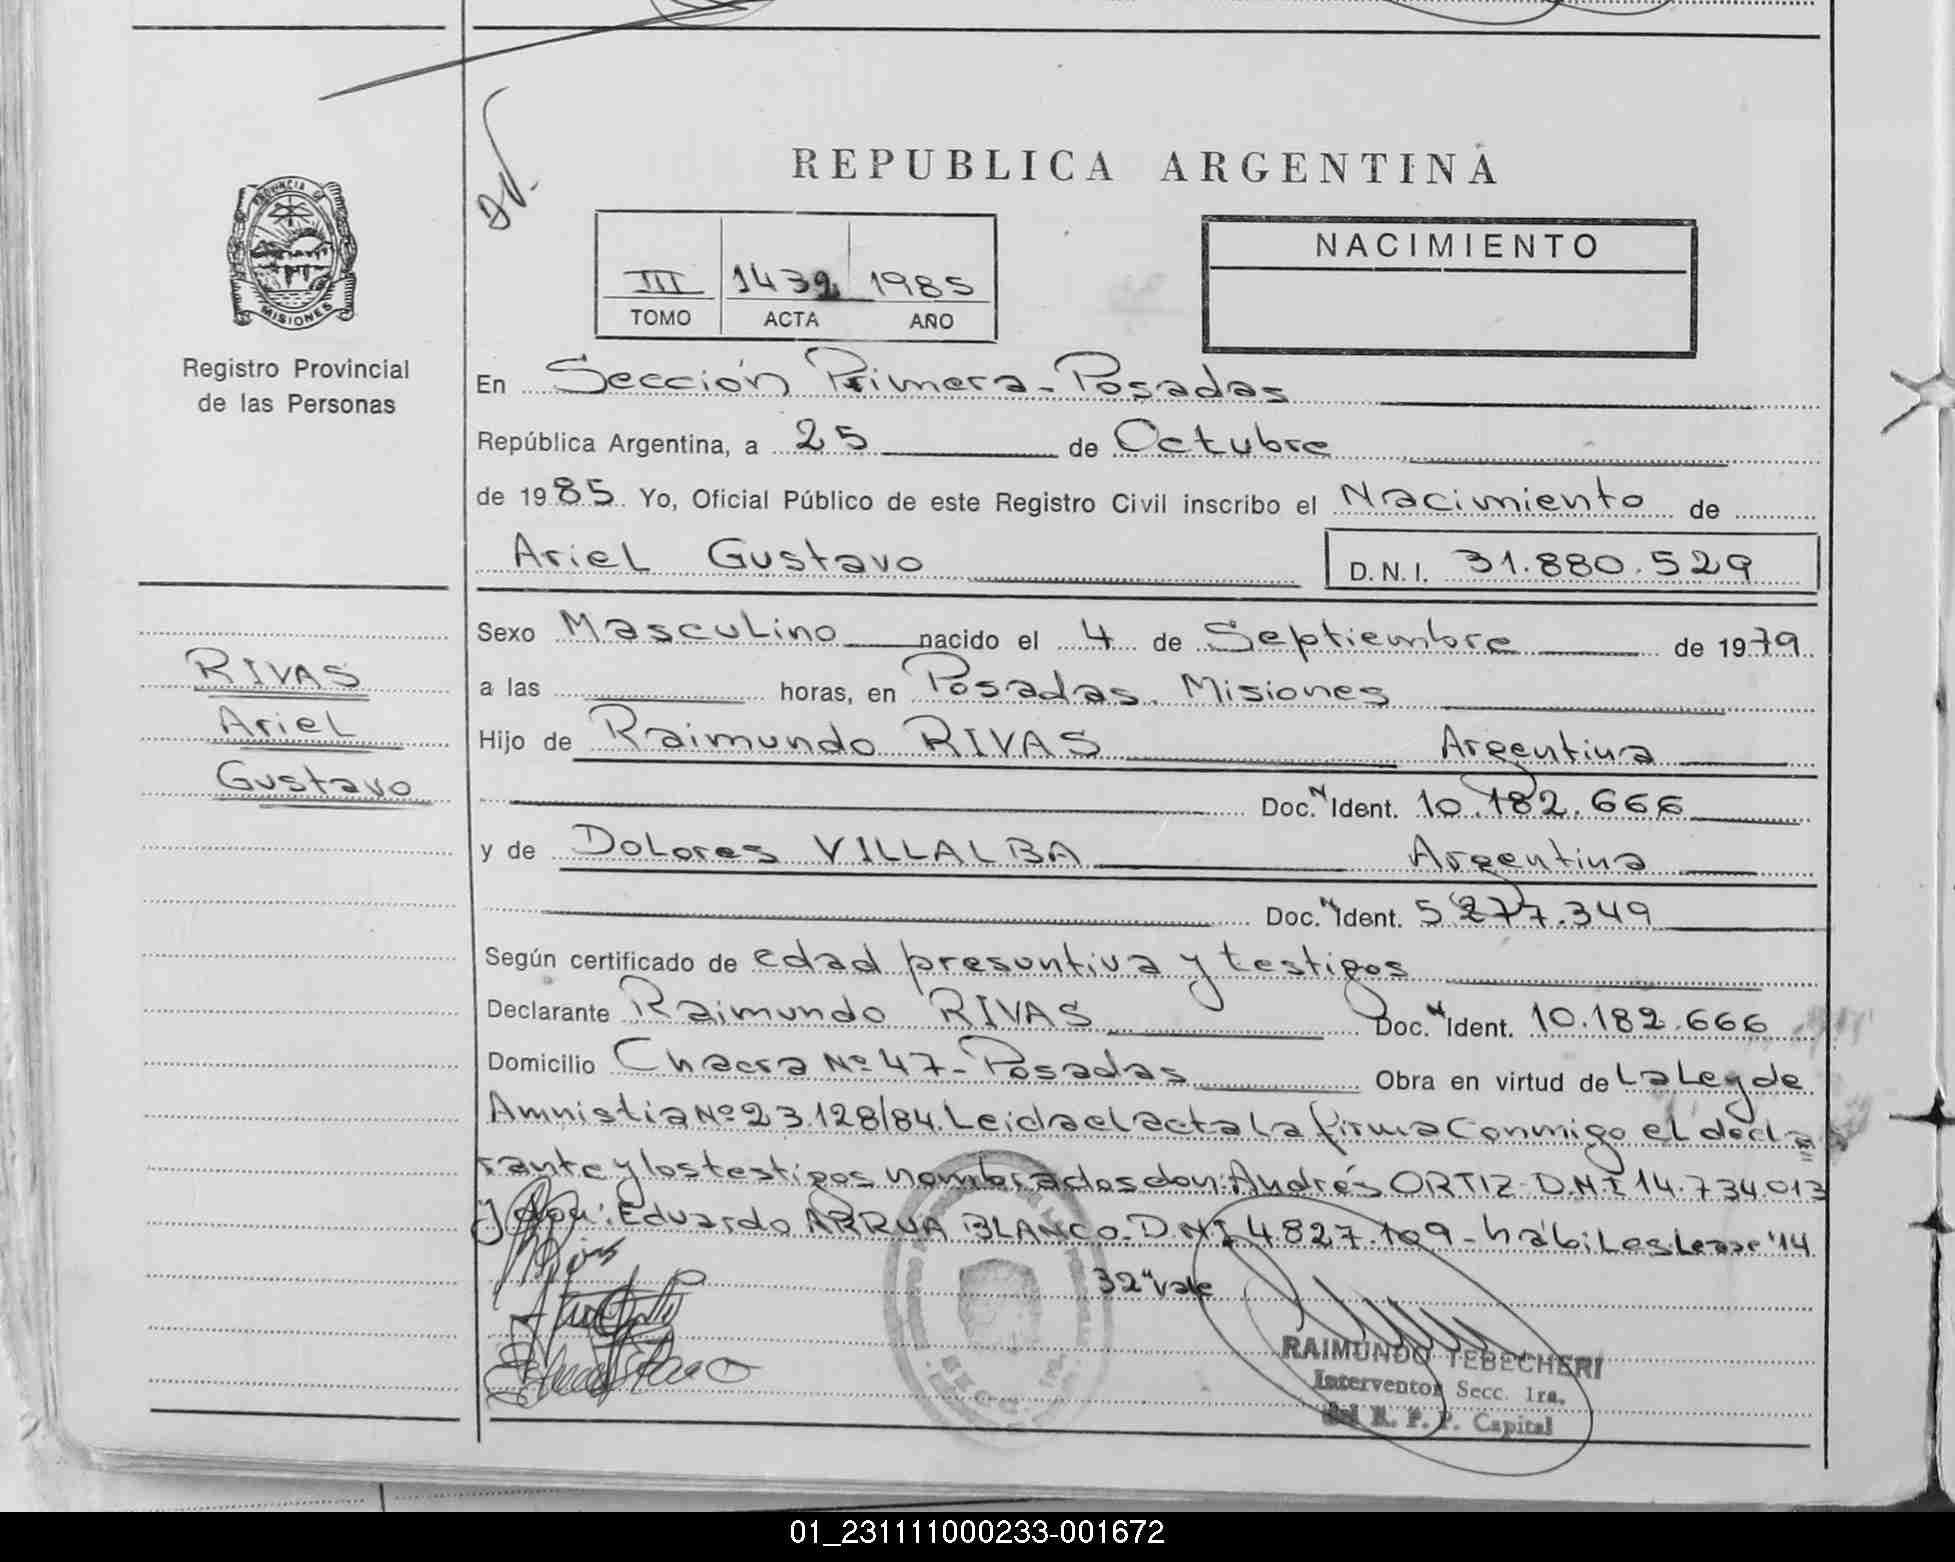 REPUBLICA ARGENTINA
PROVINCIA DE
MISIONES
Registro Provincial
de las Personas
NACIMIENTO
III 1432 1985
TOMO ACTA AÑO
En Sección Primera - Posadas
República Argentina, a 25 de Octubre
de 1985 Yo, Oficial Público de este Registro Civil inscribo el Nacimiento de
Ariel Gustavo D.N.I. 31.880.529
Sexo Masculino nacido el 4 de Septiembre de 1979
RIVAS
Ariel
Gustavo
a las horas, en Posadas. Misiones
Hijo de Raimundo RIVAS Argentina
Doc. N Ident. 10.182.666
y de Dolores VILLALBA Argentina
Doc. N Ident. 5.277.349
Según certificado de edad presuntiva y testigos
Declarante Raimundo RIVAS Doc. N Ident. 10.182.666
Domicilio Chacra Nº 47 - Posadas Obra en virtud de La Ley de
Amnistia Nº 23.128/84. Leida el acta la firma conmigo el decla
rante y los testigos nombrados don: Andrés ORTIZ D.N.I 14.734.013
y don: Eduardo ARRUA BLANCO. D.N.I 4.827.109 - hábiles
32" vale
RAIMUNDO TEBECHERI
Interventor Secc. 1ra.
del R. P. P. Capital
01_231111000233-001672